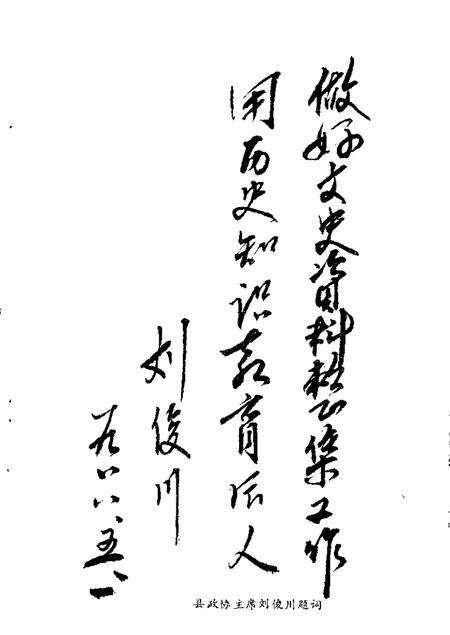 做好文史资料整集工作
用历史知识教育后人
刘俊川
一九八八、五、一
县政协主席刘俊川题词